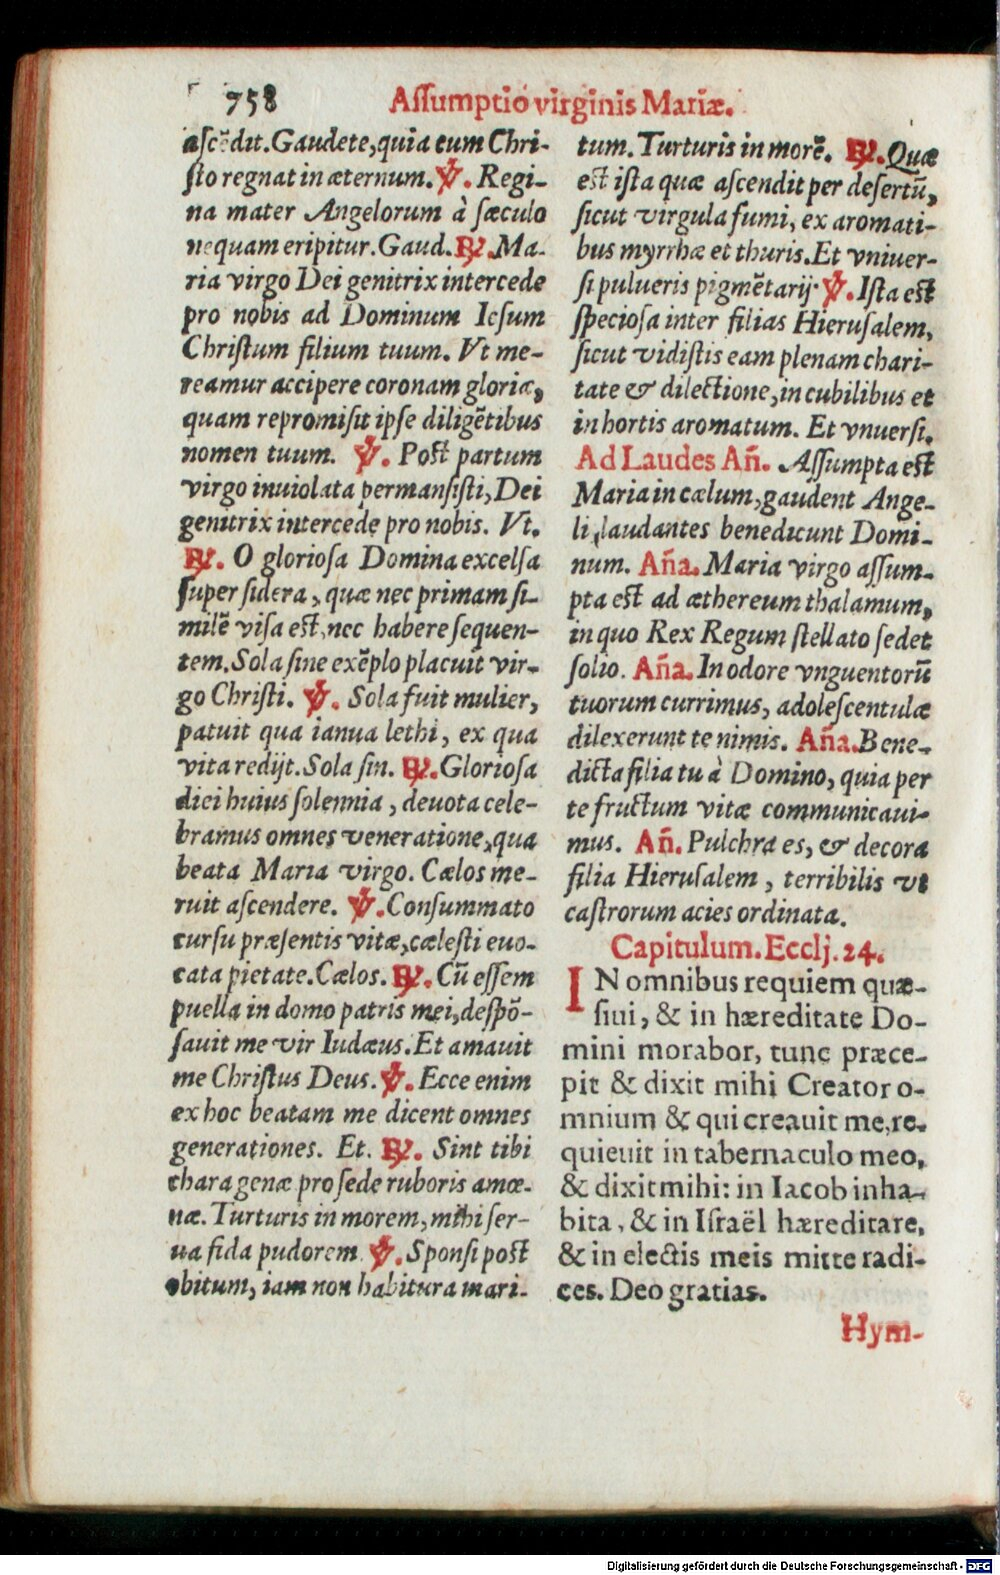 758 Aſſumptio virginis Mariæ.
aſcẽdit. Gaudete, quia cum Chri-
ſto regnat in æternum. ℣. Regi-
na mater Angelorum à ſæculo
nequam eripitur. Gaud. ℟. Ma-
ria virgo Dei genitrix intercede
pro nobis ad Dominum Ieſum
Chriſtum filium tuum. Vt me-
reamur accipere coronam gloriæ,
quam repromiſit ipſe diligẽtibus
nomen tuum. ℣. Poſt partum
virgo inuiolata permanſiſti, Dei
genitrix intercede pro nobis. Vt.
℟. O glorioſa Domina excelſa
ſuper ſidera, quæ nec primam ſi-
milẽ viſa eſt, nec habere ſequen-
tem. Sola ſine exẽplo placuit vir-
go Chriſti. ℣. Sola fuit mulier,
patuit qua ianua lethi, ex qua
vita redijt. Sola ſin. ℟. Glorioſa
diei huius ſolennia, deuota cele-
bramus omnes veneratione, qua
beata Maria virgo. Cælos me-
ruit aſcendere. ℣. Conſummato
curſu præſentis vitæ, cæleſti euo-
cata pietate. Cælos. ℟. Cũ eſſem
puella in domo patris mei, deſpõ-
ſauit me vir Iudæus. Et amauit
me Chriſtus Deus. ℣. Ecce enim
ex hoc beatam me dicent omnes
generationes. Et. ℟. Sint tibi
chara genæ pro ſede ruboris amœ-
næ. Turturis in morem, mihi ſer-
ua fida pudorem ℣. Sponſi poſt
obitum, iam non habitura mari-
tum. Turturis in morẽ. ℟. Quæ
eſt iſta quæ aſcendit per deſertũ,
ſicut virgula fumi, ex aromati-
bus myrrhæ et thuris. Et vniuer-
ſi pulueris pigmẽtarij. ℣. Iſta eſt
ſpecioſa inter filias Hieruſalem,
ſicut vidiſtis eam plenam chari-
tate & dilectione, in cubilibus et
in hortis aromatum. Et vnuerſi.
Ad Laudes Añ. Aſſumpta eſt
Maria in cælum, gaudent Ange-
li, laudantes benedicunt Domi-
num. Aña. Maria virgo aſſum-
pta eſt ad æthereum thalamum,
in quo Rex Regum ſtellato ſedet
ſolio. Aña. In odore vnguentorũ
tuorum currimus, adoleſcentulæ
dilexerunt te nimis. Aña. Bene-
dicta filia tu à Domino, quia per
te fructum vitæ communicaui-
mus. Añ. Pulchra es, & decora
filia Hieruſalem, terribilis vt
caſtrorum acies ordinata.
Capitulum. Ecclj. 24.
IN omnibus requiem quæ-
ſiui, & in hæreditate Do-
mini morabor, tunc præce-
pit & dixit mihi Creator o-
mnium & qui creauit me, re-
quieuit in tabernaculo meo,
& dixit mihi: in Iacob inha-
bita, & in Iſraël hæreditare,
& in electis meis mitte radi-
ces. Deo gratias.
Hym-
Digitalisierung gefördert durch die Deutsche Forschungsgemeinschaft - DFG